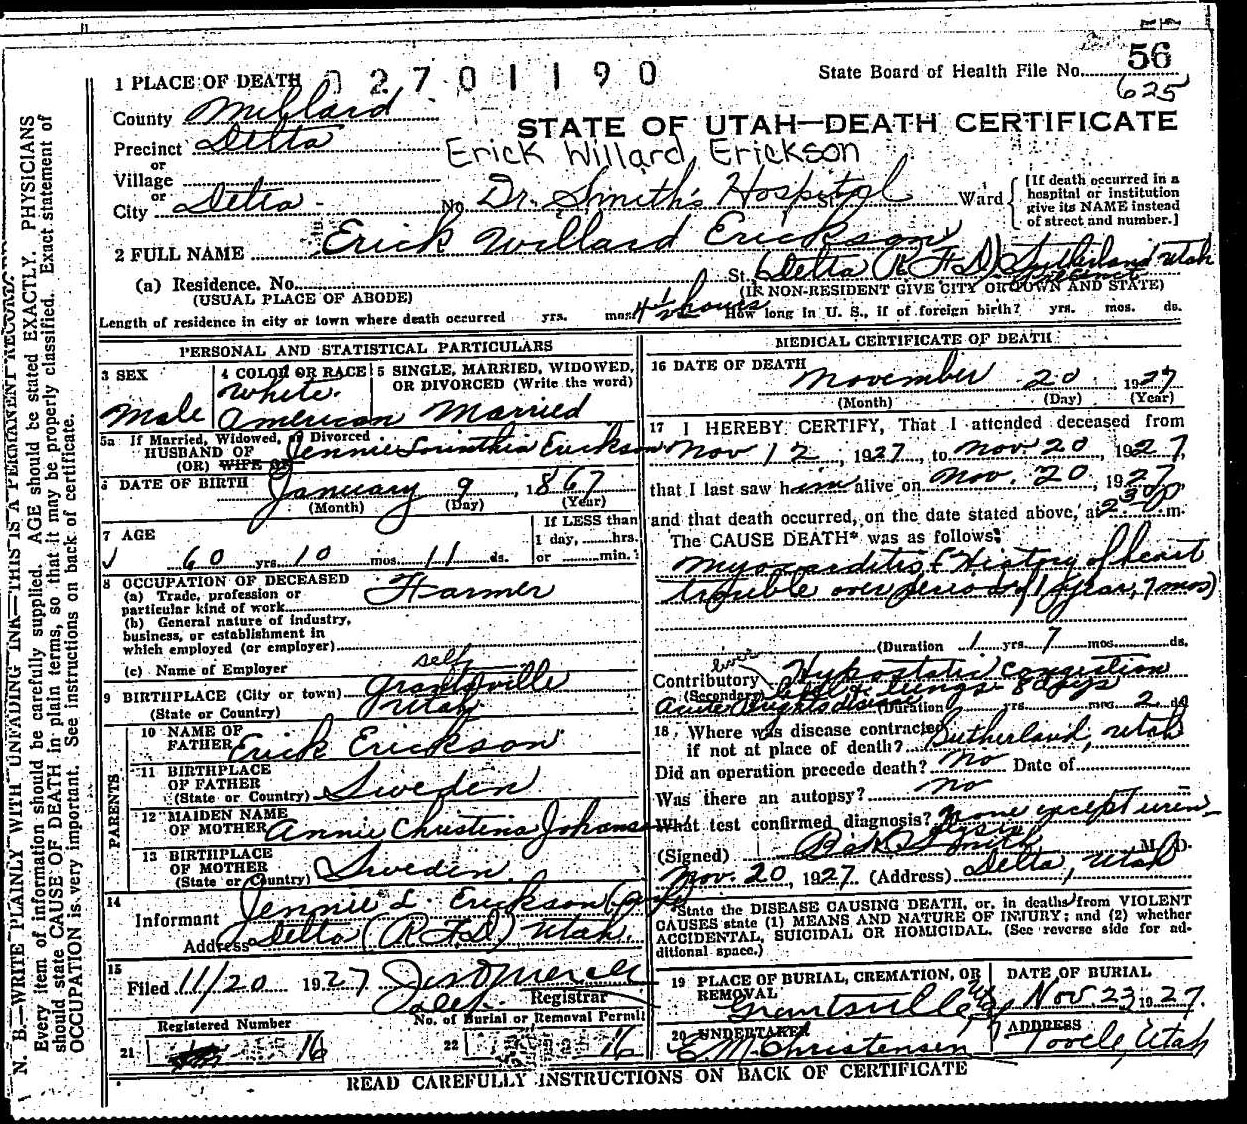 56
State Board of Health File No.
625
1 PLACE OF DEATH 02701190
County Millard
STATE OF UTAH—DEATH CERTIFICATE
Precinct Delta
Erick Willard Erickson
or
Village
or
City Delta No. Dr. Smith's Hospital St. Ward
[If death occurred in a
hospital or institution
give its NAME instead
of street and number.]
2 FULL NAME Erick Willard Erickson
(a) Residence. No. St. Delta (R.F.D) Sutherland Utah
precinct
(USUAL PLACE OF ABODE) (IF NON-RESIDENT GIVE CITY OR TOWN AND STATE)
Length of residence in city or town where death occurred yrs. mos. 4½ hours How long in U. S., if of foreign birth? yrs. mos. ds.
PERSONAL AND STATISTICAL PARTICULARS
3 SEX
Male
4 COLOR OR RACE
White
American
5 SINGLE, MARRIED, WIDOWED,
OR DIVORCED (Write the word)
Married
5a If Married, Widowed, or Divorced
HUSBAND OF Jennie Lorinthia Erickson
(OR) WIFE OF
6 DATE OF BIRTH January 9, 1867
(Month) (Day) (Year)
7 AGE
60 yrs. 10 mos. 11 ds.
If LESS than
1 day, hrs.
or min.
8 OCCUPATION OF DECEASED
(a) Trade, profession or
particular kind of work Farmer
(b) General nature of industry,
business, or establishment in
which employed (or employer)
(c) Name of Employer self
9 BIRTHPLACE (City or town) Grantsville
(State or Country) Utah
PARENTS
10 NAME OF
FATHER Erick Erickson
11 BIRTHPLACE
OF FATHER
(State or Country) Sweden
12 MAIDEN NAME
OF MOTHER Annie Christina Johansen
13 BIRTHPLACE
OF MOTHER
(State or Country) Sweden
14
Informant Jennie L. Erickson
Address Delta (R.F.D) Utah.
15
Filed 11/20 1927
Registrar
No. of Burial or Removal Permit
Registered Number
21 16
22 16
MEDICAL CERTIFICATE OF DEATH
16 DATE OF DEATH
November 20 1927
(Month) (Day) (Year)
17 I HEREBY CERTIFY, That I attended deceased from
Nov 12, 1927, to Nov. 20, 1927,
that I last saw him alive on Nov. 20, 1927
and that death occurred, on the date stated above, at 2:30 p. m.
The CAUSE DEATH* was as follows:
Myocarditis (History of heart
trouble over period of 1 year, 7 mos)
(Duration 1 yrs. 7 mos. ds.
Contributory Hypostatic congestion
(Secondary) liver & lungs - 8 days
Acute Brights disease (Duration yrs. mos. 2 ds.
18. Where was disease contracted
if not at place of death? Sutherland, Utah
Did an operation precede death? No Date of
Was there an autopsy? No
What test confirmed diagnosis? None except urin-
alysis
(Signed) Smith M. D.
Nov. 20, 1927 (Address) Delta, Utah
*State the DISEASE CAUSING DEATH, or, in deaths from VIOLENT
CAUSES state (1) MEANS AND NATURE OF INJURY; and (2) whether
ACCIDENTAL, SUICIDAL OR HOMICIDAL. (See reverse side for ad-
ditional space.)
19 PLACE OF BURIAL, CREMATION, OR
REMOVAL
Grantsville Utah
DATE OF BURIAL
Nov 23 1927.
20 UNDERTAKER
E M. Christensen
ADDRESS
Tooele, Utah
READ CAREFULLY INSTRUCTIONS ON BACK OF CERTIFICATE
N. B.—WRITE PLAINLY WITH UNFADING INK—THIS IS A PERMANENT RECORD
Every item of information should be carefully supplied. AGE should be stated EXACTLY. PHYSICIANS
should state CAUSE OF DEATH in plain terms, so that it may be properly classified. Exact statement of
OCCUPATION is very important. See instructions on back of certificate.